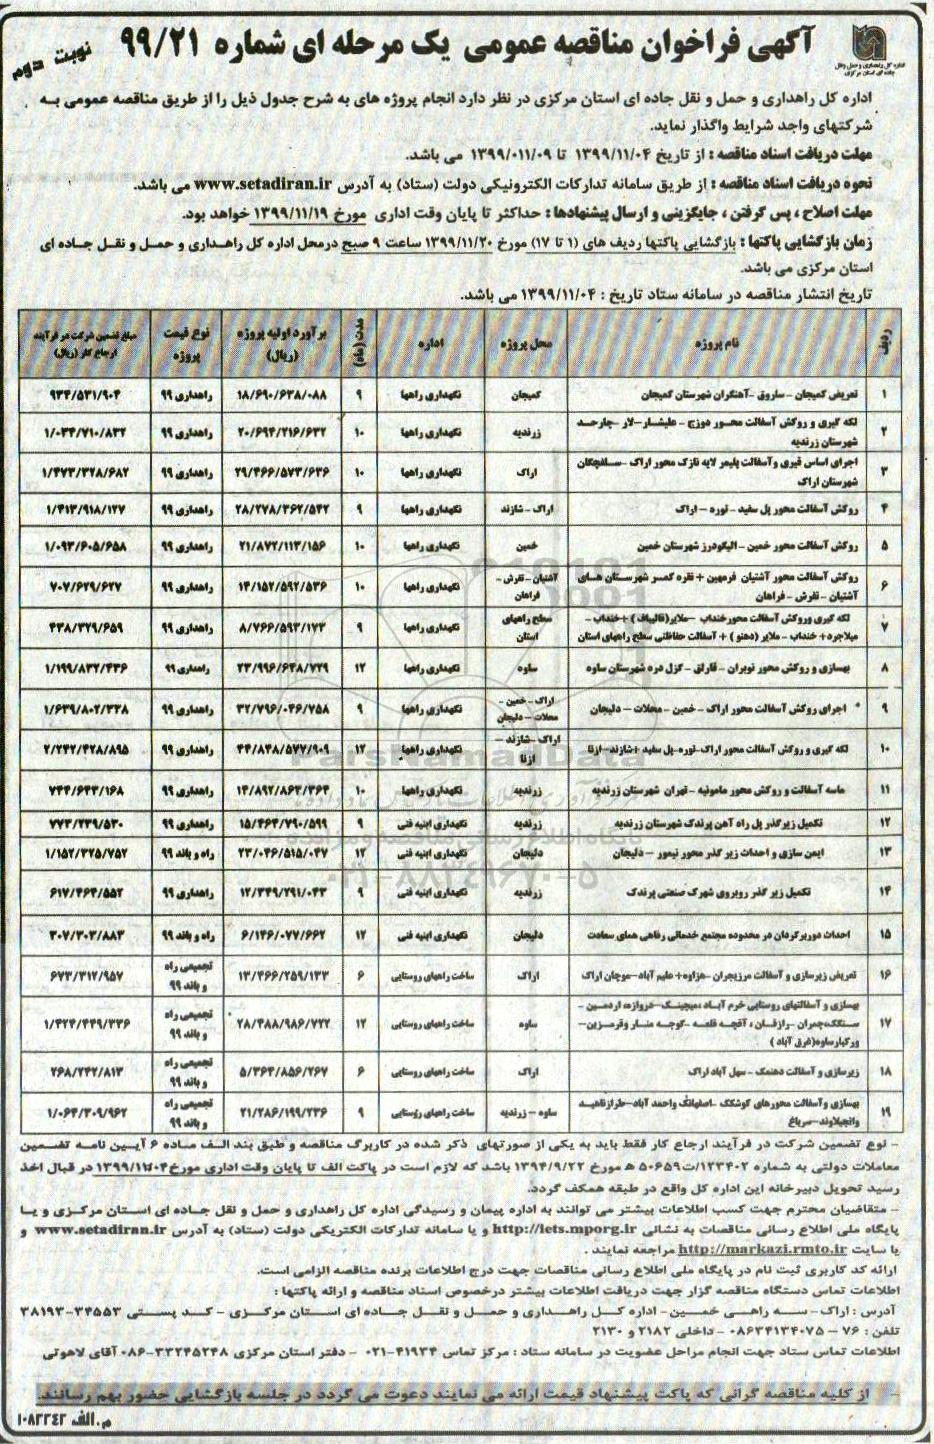 آگهی فراخوان مناقصه عمومی یک مرحله ای شماره ۹۹/۲۱
نوبت دوم
اداره کل راهداری و حمل و نقل
جاده ای استان مرکزی
اداره کل راهداری و حمل و نقل جاده ای استان مرکزی در نظر دارد انجام پروژه های به شرح جدول ذیل را از طریق مناقصه عمومی به
شرکتهای واجد شرایط واگذار نماید.
مهلت دریافت اسناد مناقصه : از تاریخ ۱۳۹۹/۱۱/۰۴ تا ۱۳۹۹/۰۱۱/۰۹ می باشد.
نحوه دریافت اسناد مناقصه : از طریق سامانه تدارکات الکترونیکی دولت (ستاد) به آدرس www.setadiran.ir می باشد.
مهلت اصلاح ، پس گرفتن ، جایگزینی و ارسال پیشنهادها : حداکثر تا پایان وقت اداری مورخ ۱۳۹۹/۱۱/۱۹ خواهد بود.
زمان بازگشایی پاکتها : بازگشایی پاکتها ردیف های (۱ تا ۱۷) مورخ ۱۳۹۹/۱۱/۲۰ ساعت ۹ صبح درمحل اداره کل راهداری و حمل و نقل جاده ای
استان مرکزی می باشد.
تاریخ انتشار مناقصه در سامانه ستاد تاریخ : ۱۳۹۹/۱۱/۰۴ می باشد.
ردیف نام پروژه محل پروژه اداره مدت (ماه) برآورد اولیه پروژه (ریال) نوع قیمت پروژه مبلغ تضمین شرکت در فرآیند ارجاع کار (ریال)
۱ تعریض کمیجان - ساروق - آهنگران شهرستان کمیجان کمیجان نگهداری راهها ۹ ۱۸/۶۹۰/۶۳۸/۰۸۸ راهداری ۹۹ ۹۳۴/۵۳۱/۹۰۴
۲ لکه گیری و روکش آسفالت محور دوزج - علیشار - لار - چارحد شهرستان زرندیه زرندیه نگهداری راهها ۱۰ ۲۰/۶۹۴/۲۱۶/۶۳۲ راهداری ۹۹ ۱/۰۳۴/۷۱۰/۸۳۲
۳ اجرای اساس قیری وآسفالت پلیمر لایه نازک محور اراک - سلفچگان شهرستان اراک اراک نگهداری راهها ۱۰ ۲۹/۴۶۶/۵۷۳/۶۳۶ راهداری ۹۹ ۱/۴۷۳/۳۲۸/۶۸۲
۴ روکش آسفالت محور پل سفید - توره - اراک اراک - شازند نگهداری راهها ۹ ۲۸/۲۷۸/۳۶۲/۵۴۲ راهداری ۹۹ ۱/۴۱۳/۹۱۸/۱۲۷
۵ روکش آسفالت محور خمین - الیگودرز شهرستان خمین خمین نگهداری راهها ۱۰ ۲۱/۸۷۲/۱۱۳/۱۵۶ راهداری ۹۹ ۱/۰۹۳/۶۰۵/۶۵۸
۶ روکش آسفالت محور آشتیان فرمهین + نقره کمر شهرستان های آشتیان - تفرش - فراهان آشتیان - تفرش - فراهان نگهداری راهها ۱۰ ۱۴/۱۵۲/۵۹۲/۵۳۶ راهداری ۹۹ ۷۰۷/۶۲۹/۶۲۷
۷ لکه گیری وروکش آسفالت محورخنداب - ملایر(قالیباف) + خنداب - میلاجرد+ خنداب - ملایر (دهنو) + آسفالت حفاظتی سطح راههای استان سطح راههای استان نگهداری راهها ۹ ۸/۷۶۶/۵۹۳/۱۷۳ راهداری ۹۹ ۴۳۸/۳۲۹/۶۵۹
۸ بهسازی و روکش محور نوبران - قارلق - گزل دره شهرستان ساوه ساوه نگهداری راهها ۱۲ ۲۳/۹۹۶/۶۴۸/۷۲۹ راهداری ۹۹ ۱/۱۹۹/۸۳۲/۴۳۶
۹ اجرای روکش آسفالت محور اراک - خمین - محلات - دلیجان اراک - خمین - محلات - دلیجان نگهداری راهها ۹ ۳۲/۷۹۶/۰۴۶/۷۵۸ راهداری ۹۹ ۱/۶۳۹/۸۰۲/۳۳۸
۱۰ لکه گیری و روکش آسفالت محور اراک-توره-پل سفید +شازند-ازنا اراک - شازند - ازنا نگهداری راهها ۱۲ ۴۴/۸۴۸/۵۷۷/۹۰۹ راهداری ۹۹ ۲/۲۴۲/۴۲۸/۸۹۵
۱۱ ماسه آسفالت و روکش محور مامونیه - تهران شهرستان زرندیه زرندیه نگهداری راهها ۱۰ ۱۴/۸۹۲/۸۶۳/۳۶۴ راهداری ۹۹ ۷۴۴/۶۴۳/۱۶۸
۱۲ تکمیل زیرگذر پل راه آهن پرندک شهرستان زرندیه زرندیه نگهداری ابنیه فنی ۹ ۱۵/۴۶۴/۷۹۰/۵۹۹ راهداری ۹۹ ۷۷۳/۲۳۹/۵۳۰
۱۳ ایمن سازی و احداث زیر گذر محور نیمور - دلیجان دلیجان نگهداری ابنیه فنی ۱۲ ۲۳/۰۴۶/۵۱۵/۰۴۷ راه و باند ۹۹ ۱/۱۵۲/۳۲۵/۷۵۲
۱۴ تکمیل زیر گذر روبروی شهرک صنعتی پرندک زرندیه نگهداری ابنیه فنی ۹ ۱۲/۳۴۹/۲۹۱/۰۴۳ راهداری ۹۹ ۶۱۷/۴۶۴/۵۵۲
۱۵ احداث دوربرگردان در محدوده مجتمع خدماتی رفاهی همای سعادت دلیجان نگهداری ابنیه فنی ۱۲ ۶/۱۴۶/۰۷۷/۶۶۲ راه و باند ۹۹ ۳۰۷/۳۰۳/۸۸۳
۱۶ تعریض زیرسازی و آسفالت مرزیجران - هزاوه+ علیم آباد-موچان اراک اراک ساخت راههای روستایی ۶ ۱۳/۴۶۶/۲۵۹/۱۳۳ تجمیعی راه و باند ۹۹ ۶۷۳/۳۱۲/۹۵۷
۱۷ بهسازی و آسفالتهای روستایی خرم آباد ،میجینک-دروازه، اردمین - سنگک،چمران - رازقان ، آقچه قلعه - کوچه منار وقرمزین- ورکبارساوه(غرق آباد ) ساوه ساخت راههای روستایی ۱۲ ۲۸/۴۸۸/۹۸۶/۷۲۲ تجمیعی راه و باند ۹۹ ۱/۴۲۴/۴۴۹/۳۳۶
۱۸ زیرسازی و آسفالت دهنمک - سهل آباد اراک اراک ساخت راههای روستایی ۶ ۵/۳۶۴/۸۵۶/۲۶۷ تجمیعی راه و باند ۹۹ ۲۶۸/۲۴۲/۸۱۳
۱۹ بهسازی وآسفالت محورهای کوشکک - اصفهانک واحمد آباد-طرازناهید وانجیلاوند- ساوه - زرندیه ساخت راههای روستایی ۹ ۲۱/۲۸۶/۱۹۹/۲۳۶ تجمیعی راه و باند ۹۹ ۱/۰۶۴/۳۰۹/۹۶۲
- نوع تضمین شرکت در فرآیند ارجاع کار فقط باید به یکی از صورتهای ذکر شده در کاربرگ مناقصه و طبق بند الف ماده ۶ آیین نامه تضمین
معاملات دولتی به شماره ۱۲۳۴۰۲/ت۵۰۶۵۹ ه مورخ ۱۳۹۴/۹/۲۲ باشد که لازم است در پاکت الف تا پایان وقت اداری مورخ در قبال اخذ
رسید تحویل دبیرخانه این اداره کل واقع در طبقه همکف گردد.
- متقاضیان محترم جهت کسب اطلاعات بیشتر می توانند به اداره پیمان و رسیدگی اداره کل راهداری و حمل و نقل جاده ای استان مرکزی و یا
پایگاه ملی اطلاع رسانی مناقصات به نشانی http://iets.mporg.ir و یا سامانه تدارکات الکتریکی دولت (ستاد) به آدرس www.setadiran.ir و
یا سایت http://markazi.rmto.ir مراجعه نمایند .
ارائه کد کاربری ثبت نام در پایگاه ملی اطلاع رسانی مناقصات جهت درج اطلاعات برنده مناقصه الزامی است.
اطلاعات تماس دستگاه مناقصه گزار جهت دریافت اطلاعات بیشتر درخصوص اسناد مناقصه و ارائه پاکتها :
آدرس : اراک - سه راهی خمین- اداره کل راهداری و حمل و نقل جاده ای استان مرکزی - کد پستی ۳۴۵۵۳-۳۸۱۹۳
تلفن : ۷۶ - ۰۸۶۳۴۱۳۴۰۷۵ - داخلی ۲۱۸۲ و ۲۱۳۰
اطلاعات تماس ستاد جهت انجام مراحل عضویت در سامانه ستاد : مرکز تماس ۴۱۹۳۴-۰۲۱ - دفتر استان مرکزی ۳۳۲۴۵۲۴۸-۰۸۶ آقای لاهوتی
- از کلیه مناقصه گرانی که پاکت پیشنهاد قیمت ارائه می نمایند دعوت می گردد در جلسه بازگشایی حضور بهم رسانند.
م.الف ۱۰۸۲۲۴۲
ParsNamadData
پایگاه اطلاع رسانی مناقصه و مزایده
۰۲۱-۸۸۳۴۹۶۷۰-۵